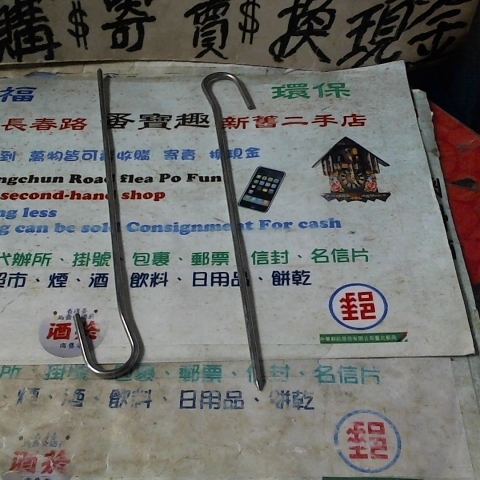 購$寄賣$換現金
福 環保
長春路 番寶趣 新舊二手店
到 萬物皆可 收購 寄賣 換現金
ngchun Road flea Po Fun
second-hand shop
ng less
g can be sold Consignment For cash
代辦所、掛號、包裹、郵票、信封、名信片
超市、煙、酒、飲料、日用品、餅乾
酒
郵
所 掛號 包裹 郵票、信封、名信片
煙、酒、飲料、日用品、餅乾
酒
郵